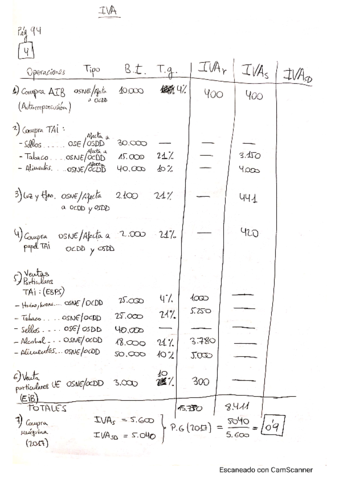 IVA
Pág 94
4
Operaciones Tipo B.I. T.g. IVAr IVAs IVASD
1) Compra AIB OSNE/Afecta a OCDD 10.000 4% 400 400
(Autorrepercusión)
2) Compra TAI:
- Sellos.... OSE/OSDD 30.000 — — —
- Tabaco.... OSNE/OCDD 15.000 21% — 3.150
- Alimentos.. OSNE/OCDD 40.000 10% — 4.000
3) Luz y tfno. OSNE/Afecta 2.100 21% — 441
a OCDD y OSDD
4) Compra OSNE/Afecta a 2.000 21% — 420
papel TAI OCDD y OSDD
5) Ventas
Particulares
TAI: (EBPS)
OSNE/OCDD 25.000 4% 1000 —
- Tabaco.... OSNE/OCDD 25.000 21% 5.250 —
- Sellos.... OSE/OSDD 40.000 — — —
- Alcohol.... OSNE/OCDD 18.000 21% 3.780 —
- Alimentos... OSNE/OCDD 50.000 10% 5.000 —
6) Venta 10
particulares UE OSNE/OCDD 3.000 % 300 —
(EIB)
TOTALES 15.730 8.411
7) Compra IVAs = 5.600 } P.G (2017) = 5040 / 5.600 = 0'9
(2017) IVASD = 5.040
Escaneado con CamScanner